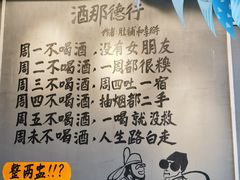 酒那德行
作者:肚铺和李胖
周一不喝酒,没有女朋友
周二不喝酒,一周都很糗
周三不喝酒,周四吐一宿
周四不喝酒,抽烟都二手
周五不喝酒,一喝就没救
周末不喝酒,人生路白走
整两盅!!?